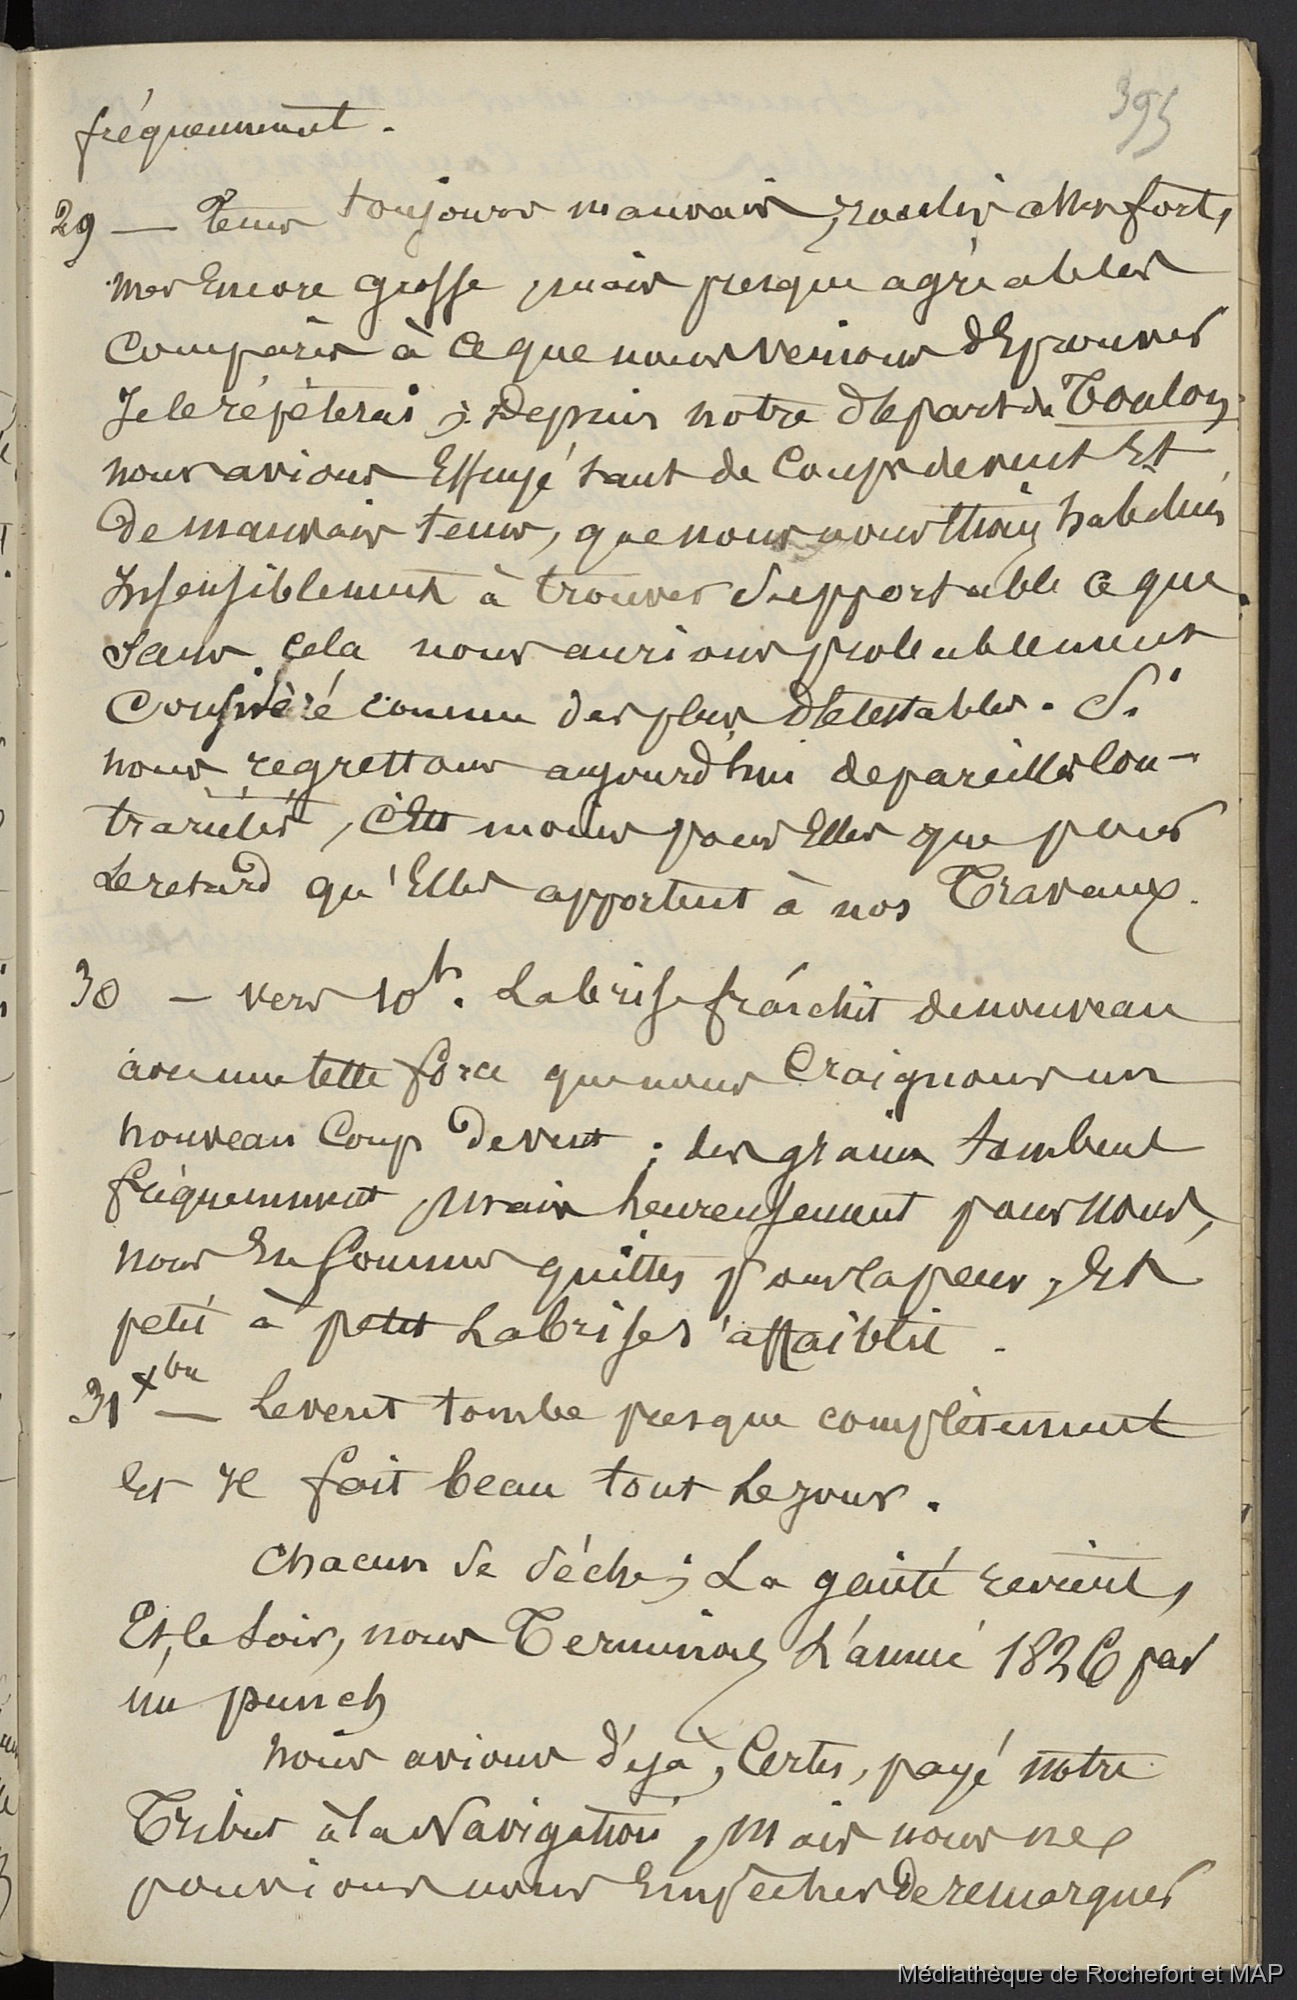 395
fréquemment.
29 — Tems toujours mauvais, roulis très forts,
mer Encore grosse, mais presque agréables
Comparés à Ce que nous venions d'Eprouver
Je le répèterai ; Depuis notre départ de Toulon,
nous avions Essuyé tant de Coups de vent Et
De mauvais tems, que nous nous étions habitués
Insensiblement à trouver Supportable Ce que
Sans Cela nous aurions probablement
Considéré comme des plus détestables. Si
nous regrettons aujourd'hui de pareilles Con-
trariétés, C'Est moins pour Elles que pour
Le retard qu'Elles apportent à nos Travaux.
30 — vers 10h. La brise fraîchit de nouveau
avec une telle force que nous Craignons un
nouveau Coup De vent ; des grains tombent
fréquemment, mais heureusement pour nous,
nous En Sommes quittes pour la peur, Et
petit à petit La brise s'affaiblit.
31 Xbre — Le vent tombe presque complètement
Et Il fait beau tout Le jour.
Chacun Se Sèche ; La gaité revient,
Et, le Soir, nous Terminons L'année 1826 par
un punch
nous avions déjà, Certes, payé notre
Tribut à la Navigation, Mais nous ne
pouvions nous Empêcher De remarquer
Médiathèque de Rochefort et MAP